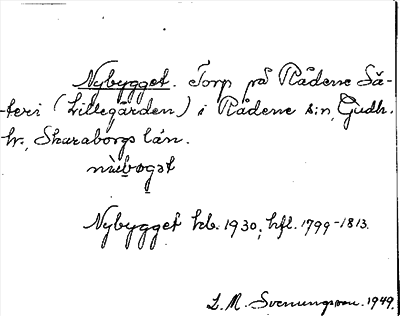 Nybygget. Torp på Rådene Sä-
teri (Lillegården) i Rådene s:n, Gudh.
hr., Skaraborgs län.
nỳbogət
Nybygget kb. 1930, hfl. 1799-1813.
L. M. Svenungsson. 1949.